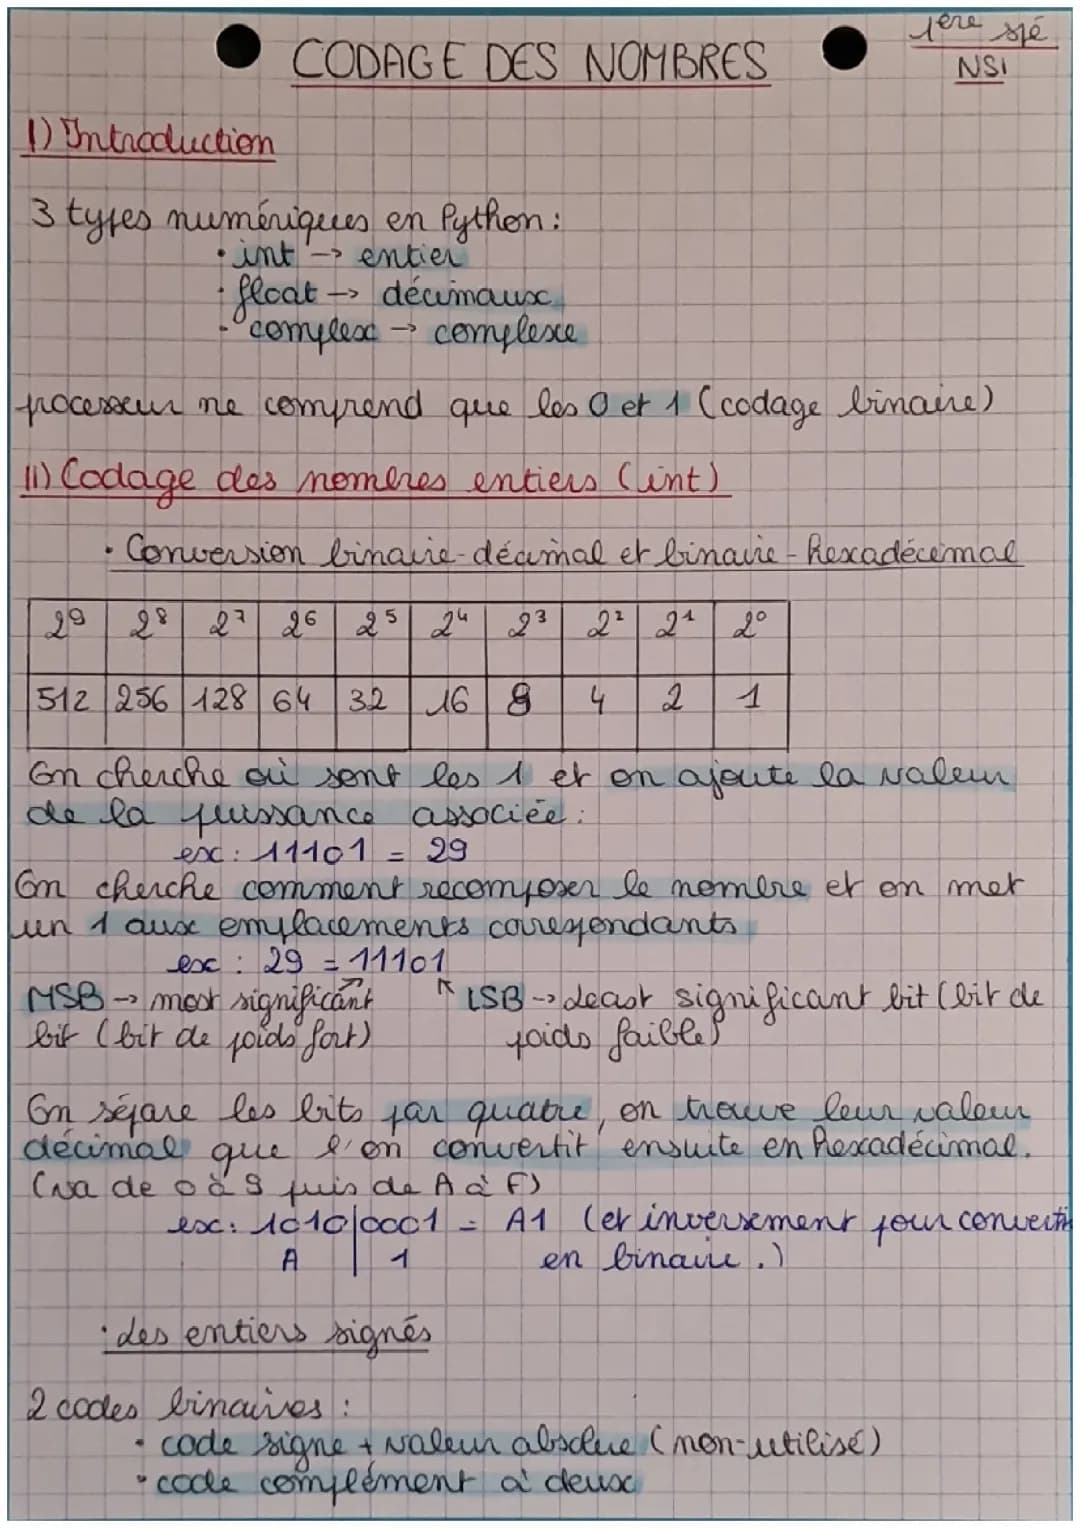 CODAGE DES NOMBRES
1ère spé
NSI
I) Introduction
3 types numériques en Python :
• int → entier
• float → décimaux
• complex → complexe
processeur ne comprend que les 0 et 1 (codage binaire)
II) Codage des nombres entiers (int)
• Conversion binaire-décimal et binaire-hexadécimal
2⁹ 2⁸ 2⁷ 2⁶ 2⁵ 2⁴ 2³ 2² 2¹ 2⁰
512 256 128 64 32 16 8 4 2 1
On cherche où sont les 1 et on ajoute la valeur
de la puissance associée :
ex : 11101 = 29
On cherche comment recomposer le nombre et on met
un 1 aux emplacements correspondants
ex : 29 = 11101
MSB → most significant
bit (bit de poids fort)
LSB → least significant bit (bit de
poids faible)
On sépare les bits par quatre, on trouve leur valeur
décimal que l'on convertit ensuite en hexadécimal.
(va de 0 à 9 puis de A à F)
ex : 1010|0001 = A1 (et inversement pour convertir
A | 1 en binaire.)
• des entiers signés
2 codes binaires :
• code signe + valeur absolue (non-utilisé)
• code complément à deux